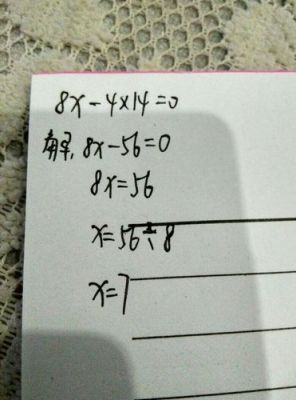 8x-4×14=0
解，8x-56=0
8x=56
x=56÷8
x=7